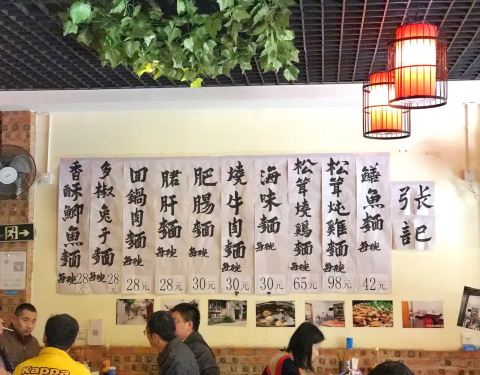 張記
鱔魚麵 每碗 42元
松茸炖雞麵 每碗 98元
松茸燒鷄麵 每碗 65元
海味麵 每碗 30元
燒牛肉麵 每碗 30元
肥腸麵 每碗 30元
肝麵 每碗 28元
回鍋肉麵 每碗 28元
多椒兔子麵 每碗 28
香酥鯽魚麵 每碗 28元
Kappa